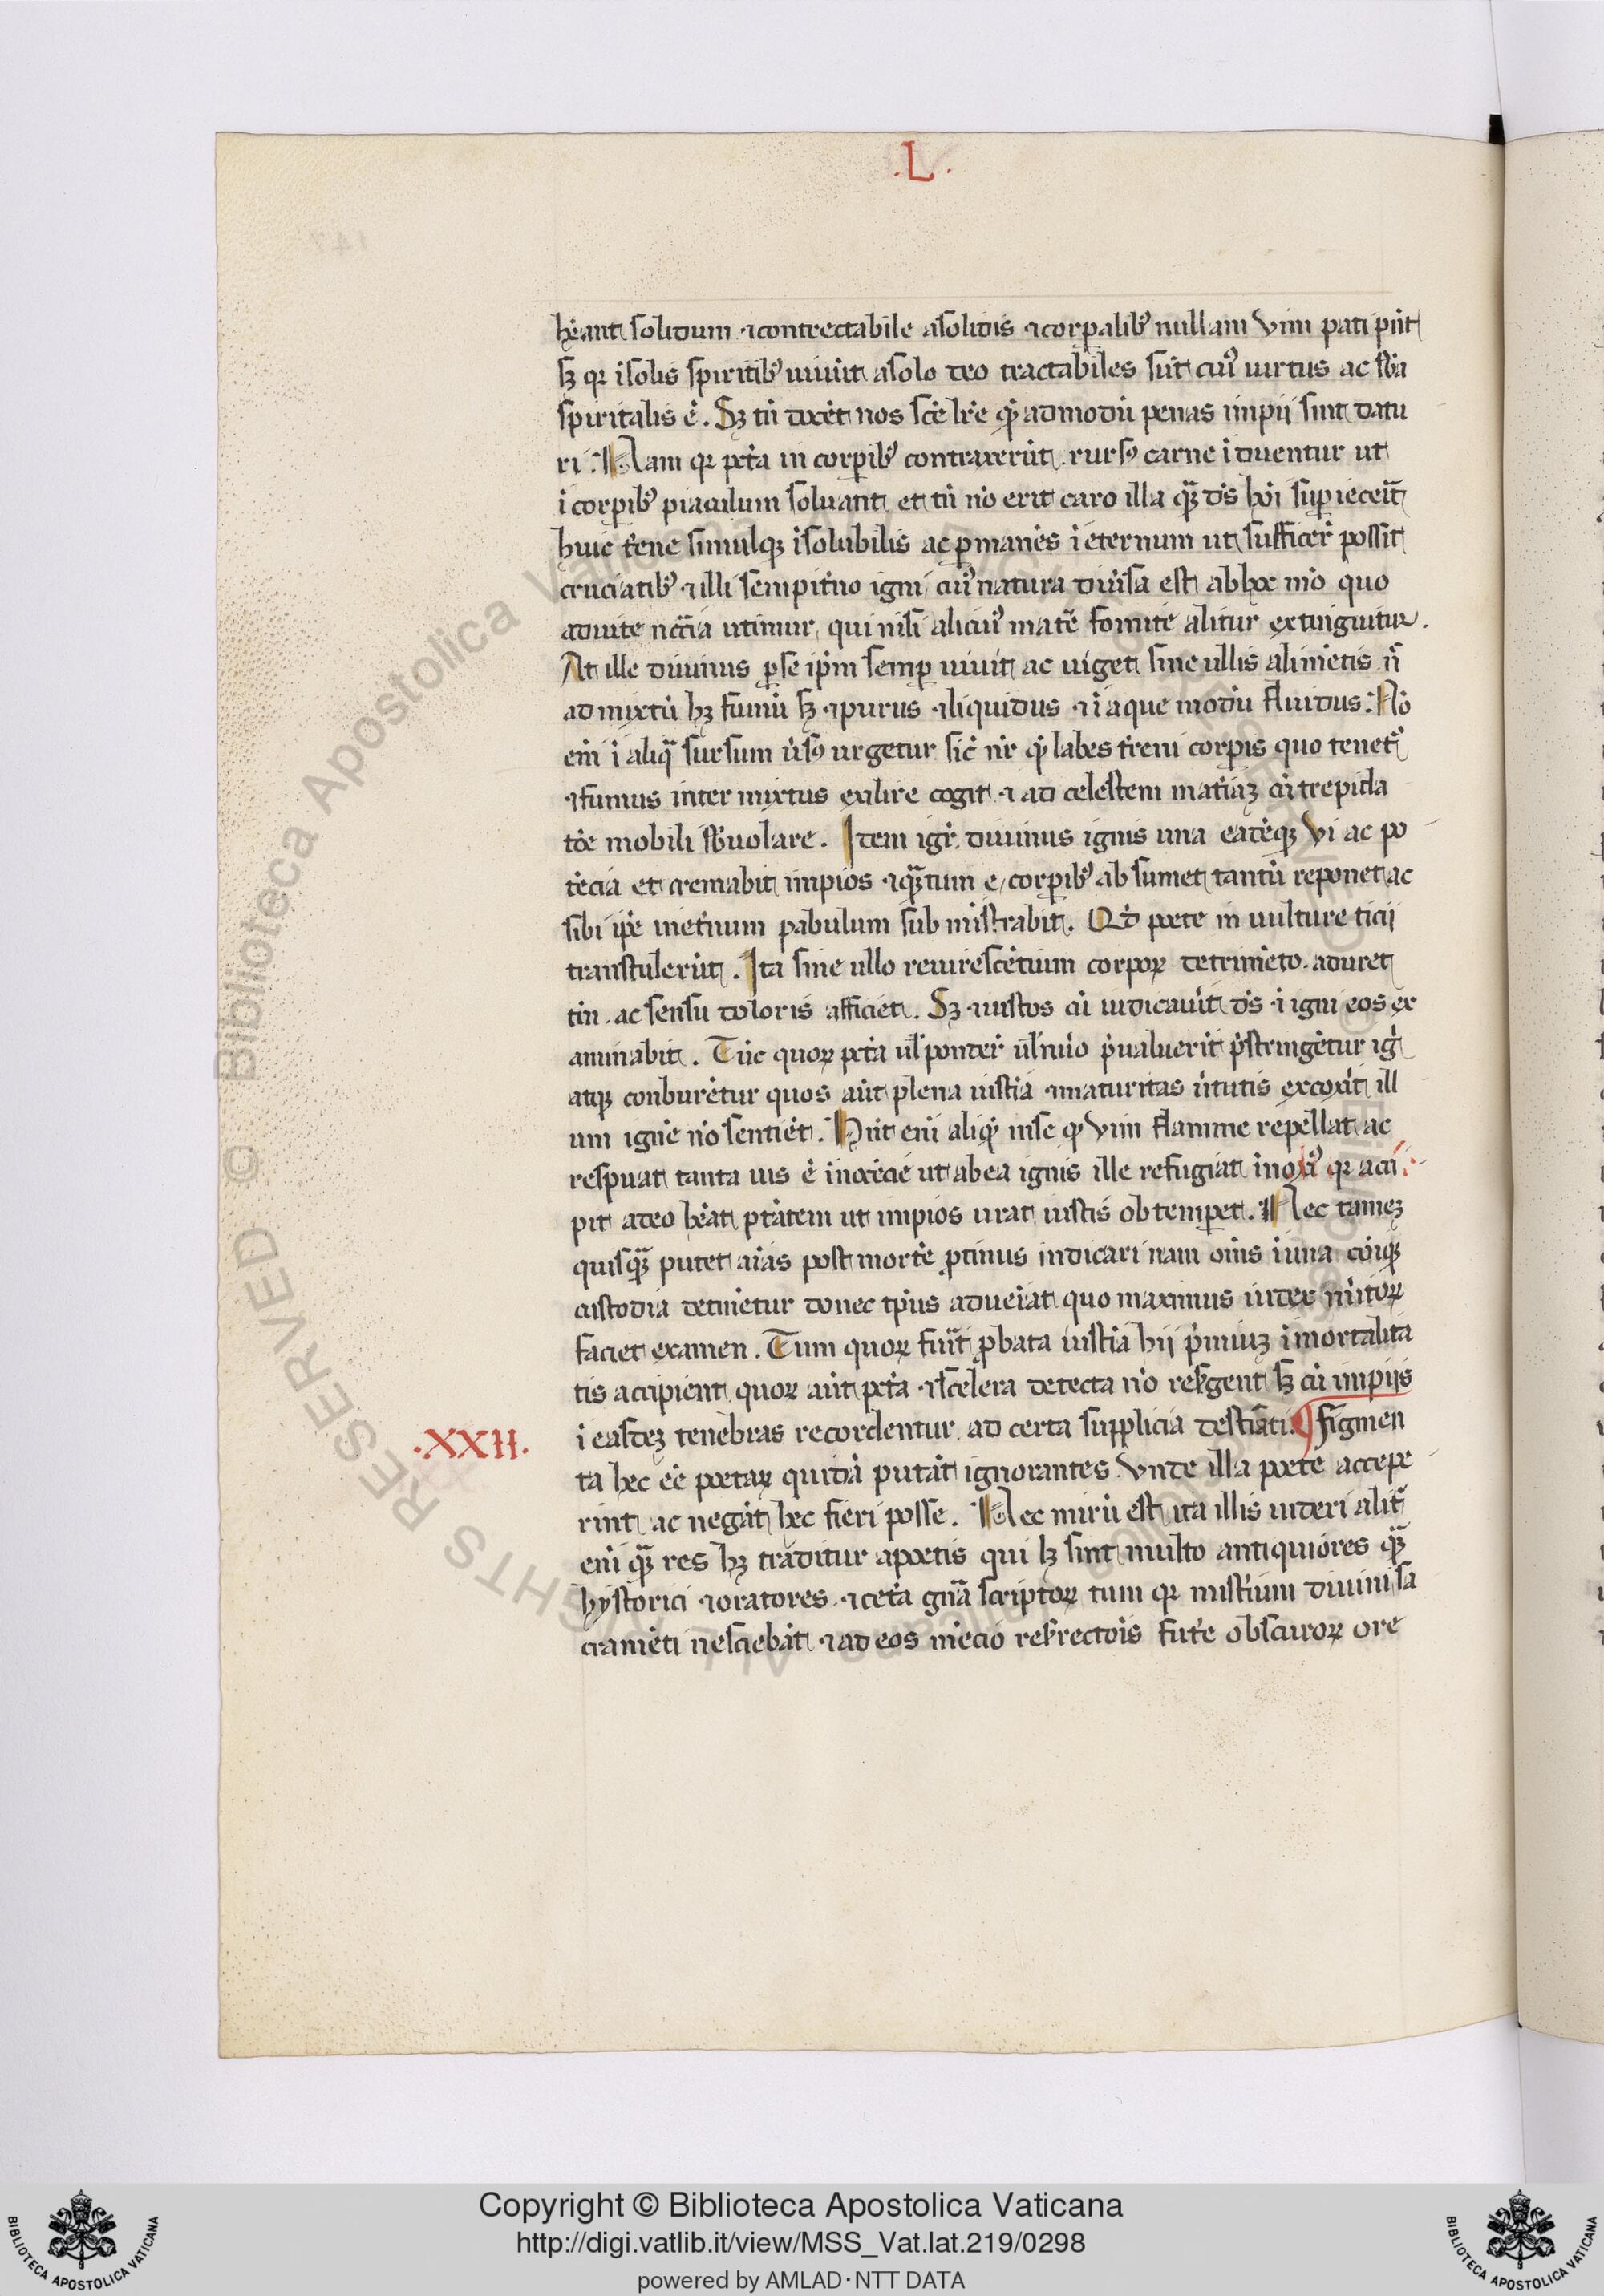 .L.
hėant solidum ⁊ contrectabile a solidis ⁊ corpalibꝰ nullam vim pati pn̄t
sꝫ qꝛ ī solis spiritibꝰ uiuūt a solo deo tractabiles sūt cuiꝰ uirtus ac sb̄a
spiritalis ē. Sꝫ tn̄ docēt nos scē lr̄e quēadmodū penas impii sint datu
ri. Nam qꝛ pctā in corpibꝰ contraxerūt rursꝰ carne īduentur ut
ī corpibꝰ piaculum soluant et tn̄ nō erit caro illa quā ds̄ hoī supiecerit
huic trēne simulqꝫ īsolubilis ac ꝑmanēs ī eternum ut sufficer̄ possit
cruciatibꝰ ⁊ illi sempitn̄o igni cuiꝰ natura diuīsa est ab hoc nr̄o quo
ad uite nccīa utimur qui nisi alicuiꝰ matē fomite alitur extinguitur.
At ille diuinus ꝑ se ip̄m semp uiuit ac uiget sine ullis alimētis n̄
admixtū hꝫ fumū sꝫ ⁊ purus ⁊ liquidus ⁊ ī aque modū fluidus. Nō
enī ī aliqͣ sursum ūsꝰ urgetur sic̄ nr̄ quē labes trēni corpis quo tenetͬ
⁊ fumus intermixtus exilire cogit ⁊ ad celestem matīaꝫ cū trepida
tōe mobili sb̄uolare. Item igr̄ diuinus ignis una eadēqꝫ vi ac po
tēcia et cremabit impios ⁊ quātum e corpibꝰ absumet tantū reponet ac
sibi ipē inetn̄um pabulum submīstrabit. Qd̄ poete in uulture ticii
transtulerūt. Ita sine ullo reuirescētium corpoꝝ detrimēto aduret
tm̄ ac sensu doloris afficiet. Sꝫ ⁊ iustos cū iudicauīt ds̄ ī igni eos ex
aminabit. Tūc quoꝝ pctā ul̄ ponder̄ ul̄ nūo p̄ualuerīt p̄stringētur iḡ
atqꝫ conburētur quos aūt plena iustīa ⁊ maturitas ūtutis excoxīt ill
um ignē nō sentiēt. Hn̄t enī aliqͥ in se qͥ vim flamme repellat ac
respuat tanta uis ē īnocēcie ut ab ea ignis ille refugiat īnoxiꝰ qꝛ acci
pit a deo hēat ptātem ut impios urat iustis obtemperet. Nec tameꝫ
quisqͣꝫ putet aīas post mortē ꝓtinus iudicari nam om̄s ī una cōiqꝫ
custodia detinētur donec tp̄us adueīat quo maximus iudex mītoꝝ
faciet examen. Tum quoꝝ fuīt ꝓbata iustīa hii p̄miuꝫ īmortalita
tis accipient quoꝝ aūt pctā ⁊ scelera detecta nō resꝰgent sꝫ cū impiis
ī easdeꝫ tenebras recordentur ad certa supplicia destīati. ¶ figmen
.XXII.
ta hec eē poetaꝝ quidā putāt ignorantes vnde illa poete accepe
rint ac negāt hec fieri posse. Nec mirū est ita illis uideri alit̄
enī quā res hꝫ traditur a poetis qui lꝫ sint multo antiquiores quā
hystorici ⁊ oratores ⁊ cetā gn̄a scriptoꝝ tum qꝛ mistīum diuini sa
cramēti nesciebāt ⁊ ad eos mēcio resꝰrectōis futē obscuroꝝ ore
Copyright © Biblioteca Apostolica Vaticana
http://digi.vatlib.it/view/MSS_Vat.lat.219/0298
powered by AMLAD · NTT DATA
BIBLIOTECA APOSTOLICA VATICANA
BIBLIOTECA APOSTOLICA VATICANA